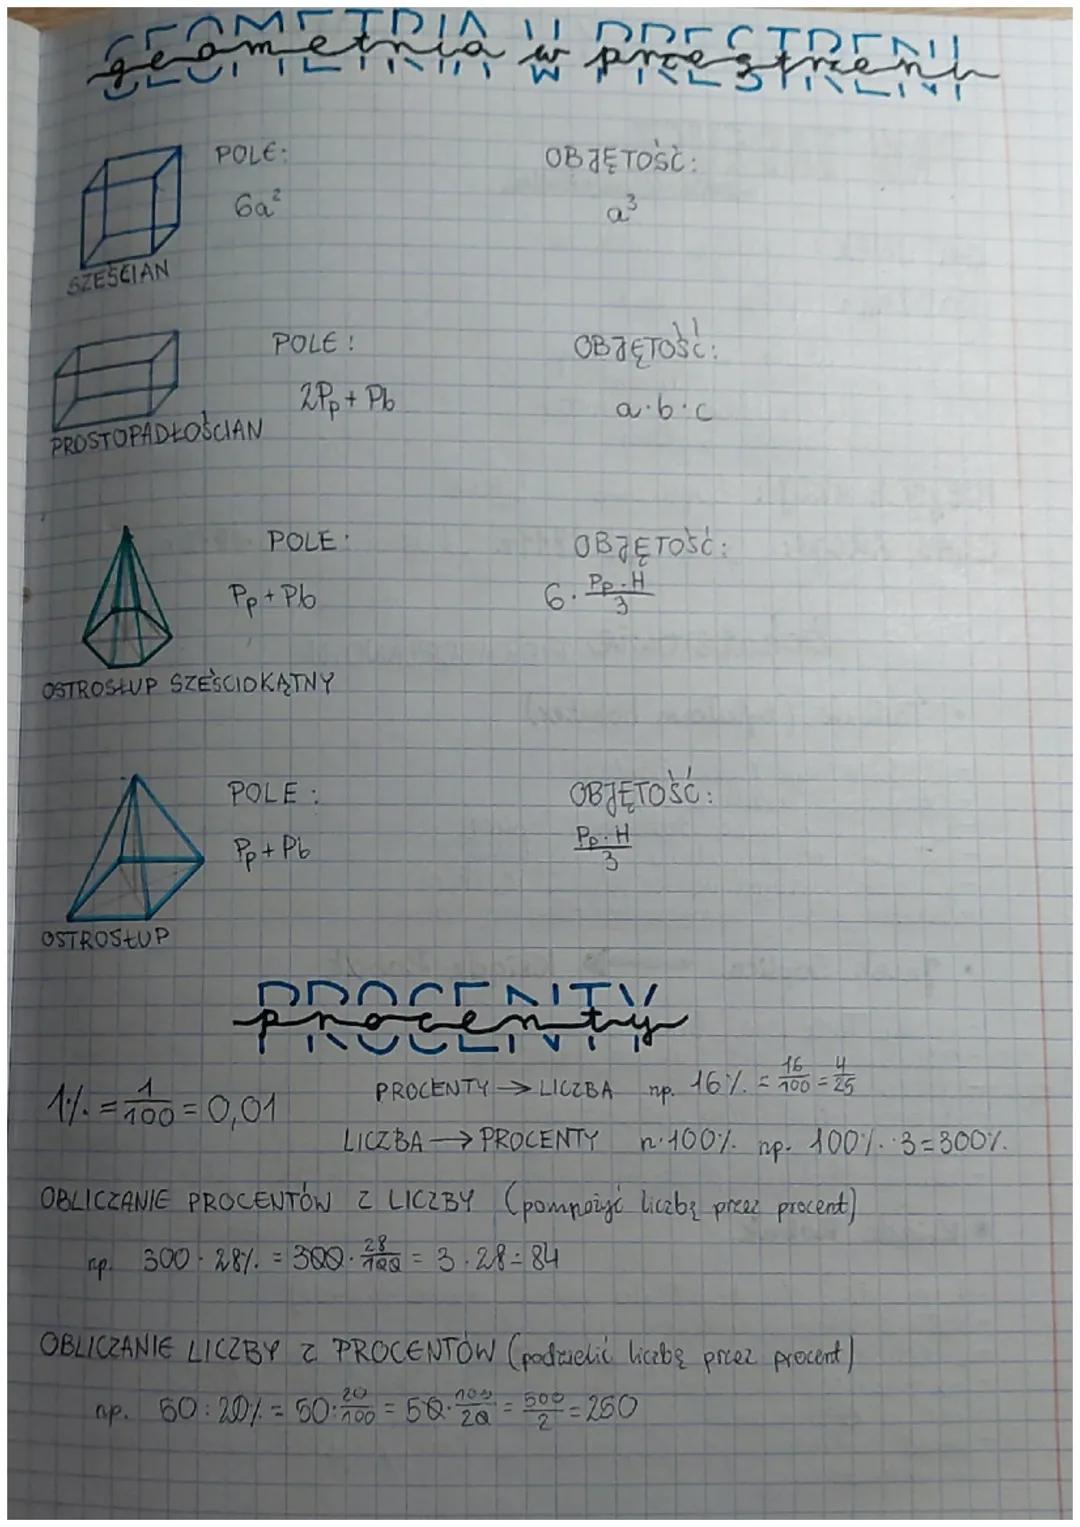 geometria w przestrzeni
POLE:
OBJĘTOŚĆ:
6a²
a³
SZEŚCIAN
POLE:
OBJĘTOŚĆ:
2Pp + Pb
a·b·c
PROSTOPADŁOŚCIAN
POLE:
OBJĘTOŚĆ:
Pp + Pb
6· Pp·H/3
OSTROSŁUP SZEŚCIOKĄTNY
POLE:
OBJĘTOŚĆ:
Pp + Pb
Pp·H/3
OSTROSŁUP
procenty
1% = 1/100 = 0,01
PROCENTY → LICZBA np. 16% = 16/100 = 4/25
LICZBA → PROCENTY n·100% np. 100%·3=300%
OBLICZANIE PROCENTÓW Z LICZBY (pomnożyć liczbę przez procent)
np. 300 · 28% = 300 · 28/100 = 3 · 28 = 84
OBLICZANIE LICZBY Z PROCENTÓW (podzielić liczbę przez procent)
np. 50 : 20% = 50 : 20/100 = 50 · 100/20 = 500/2 = 250